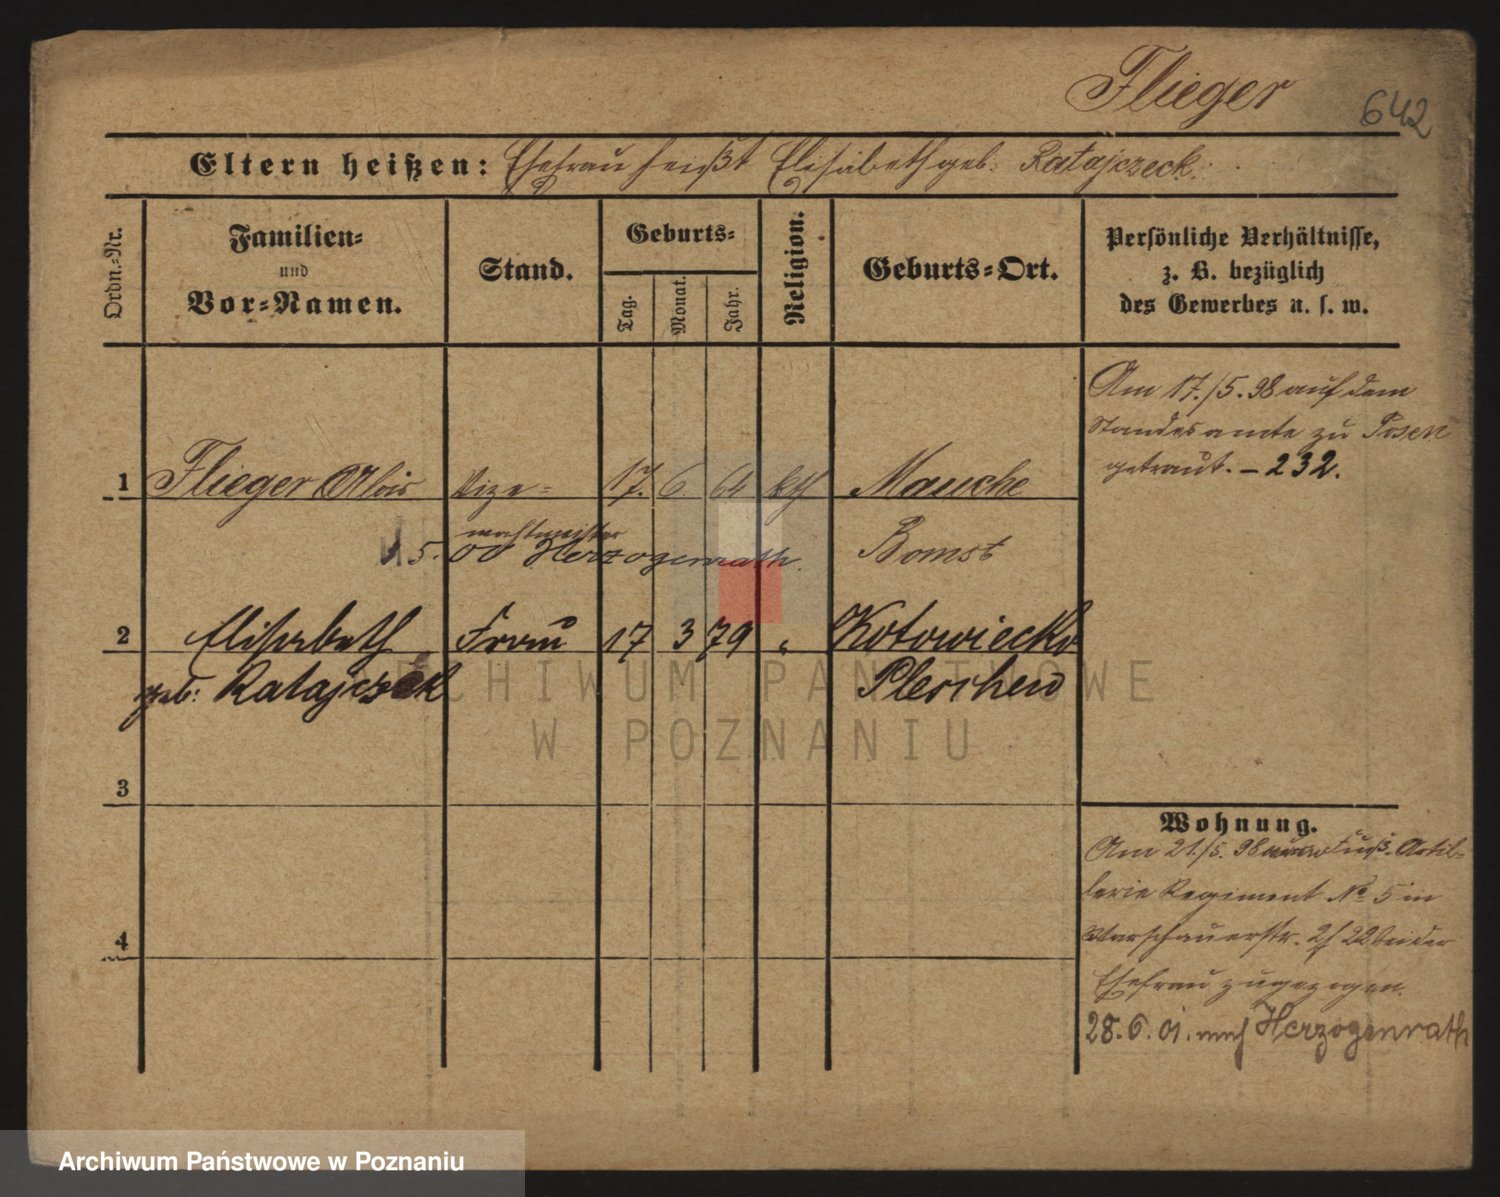 Flieger 642
Eltern heißen: Ehefrau heißt Elisabeth geb. Ratajczeck.
Ordn.-Nr.
Familien-
und
Vor-Namen.
Stand.
Geburts-
Tag.
Monat.
Jahr.
Religion.
Geburts-Ort.
Persönliche Verhältnisse,
z. B. bezüglich
des Gewerbes u. s. w.
Am 17./5. 98 auf dem
Standesamte zu Posen
getraut. – 232.
1 Flieger Alois Vize- 17. 6. 64 kth Mauche
wachtmeister
5. 00 Herzogenrath. Bomst
2 Elisabeth Frau 17 3 79 " Kotowiecko
geb: Ratajczek Pleschen
3
4
Wohnung.
Am 21./5. 98 Fuß-Artil-
lerie Regiment No 5 in
Warschauerstr. 2/22 bei der
Ehefrau zugezogen.
28. 6. 01. nach Herzogenrath
ARCHIWUM PAŃSTWOWE
W POZNANIU
Archiwum Państwowe w Poznaniu